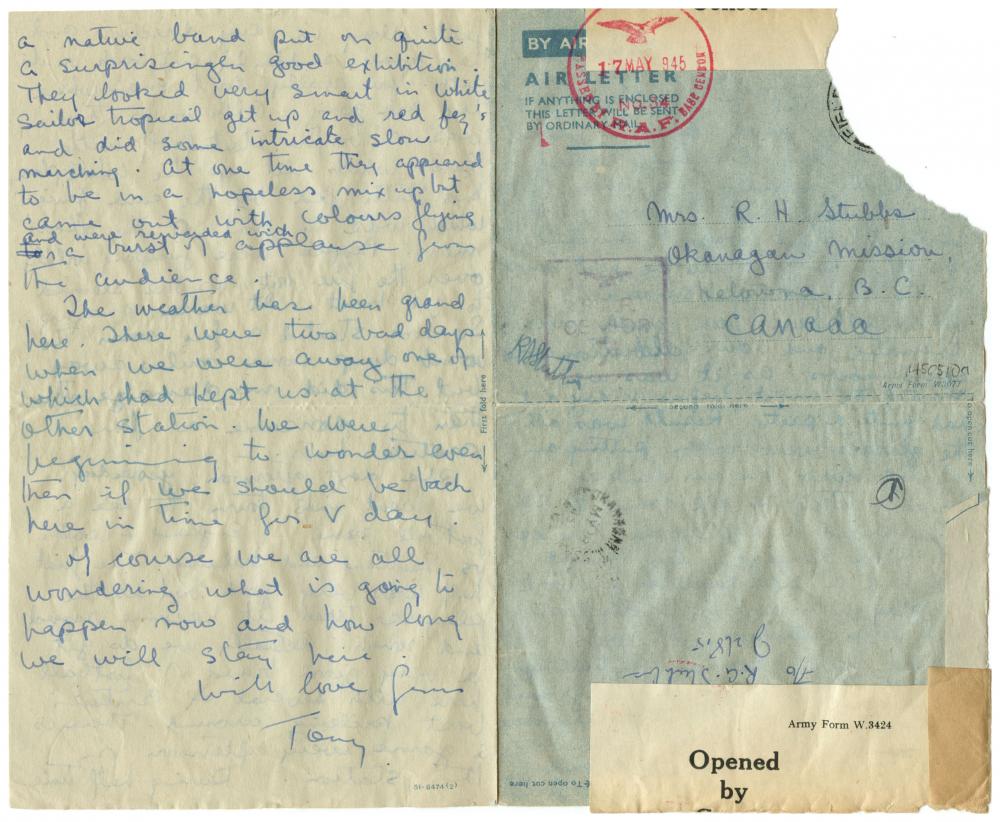 a native band put on quite
a surprisingly good exhibition.
They looked very smart in white
sailor tropical get up and red fez's
and did some intricate slow
marching. At one time they appeared
to be in a hopeless mix up but
came out with colours flying
and were rewarded with
a burst of applause from
the audience.
The weather has been grand
here. There were two bad days
when we were away one of
which had kept us at the
other station. We were
beginning to wonder even
then if we should be back
here in time for V day.
Of course we are all
wondering what is going to
happen now and how long
we will stay here.
With love from
Tony
51-6474(2)
First fold here
BY AIR
AIR LETTER
IF ANYTHING IS ENCLOSED
THIS LETTER WILL BE SENT
BY ORDINARY MAIL
17 MAY 945
R.A.F. CENSOR
Mrs. R. H. Stubbs
Okanagan Mission,
Kelowna, B.C.
CANADA
Army Form W.3077
Second fold here
To open cut here
To open cut here
Army Form W.3424
Opened
by